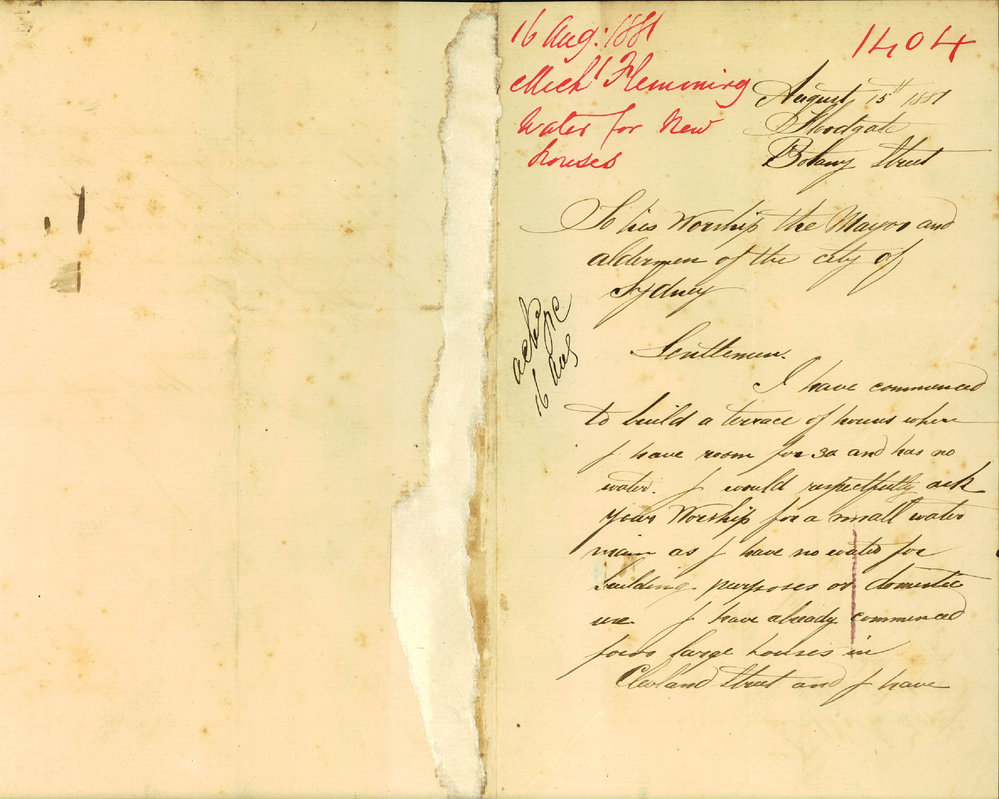 16 Aug: 1881
Michl Flemming
Water for New
houses
1404
August 15th 1881
Floodgate
Botany Street
To his Worship the Mayor and
aldermen of the city of
Sydney
ack
16 Aug
Gentlemen.
I have commenced
to build a terrace of houses where
I have room for 30 and has no
water. I would respectfully ask
your Worship for a small water
main as I have no water for
building purposes or domestic
use I have already commenced
four large houses in
Cleveland Street and I have